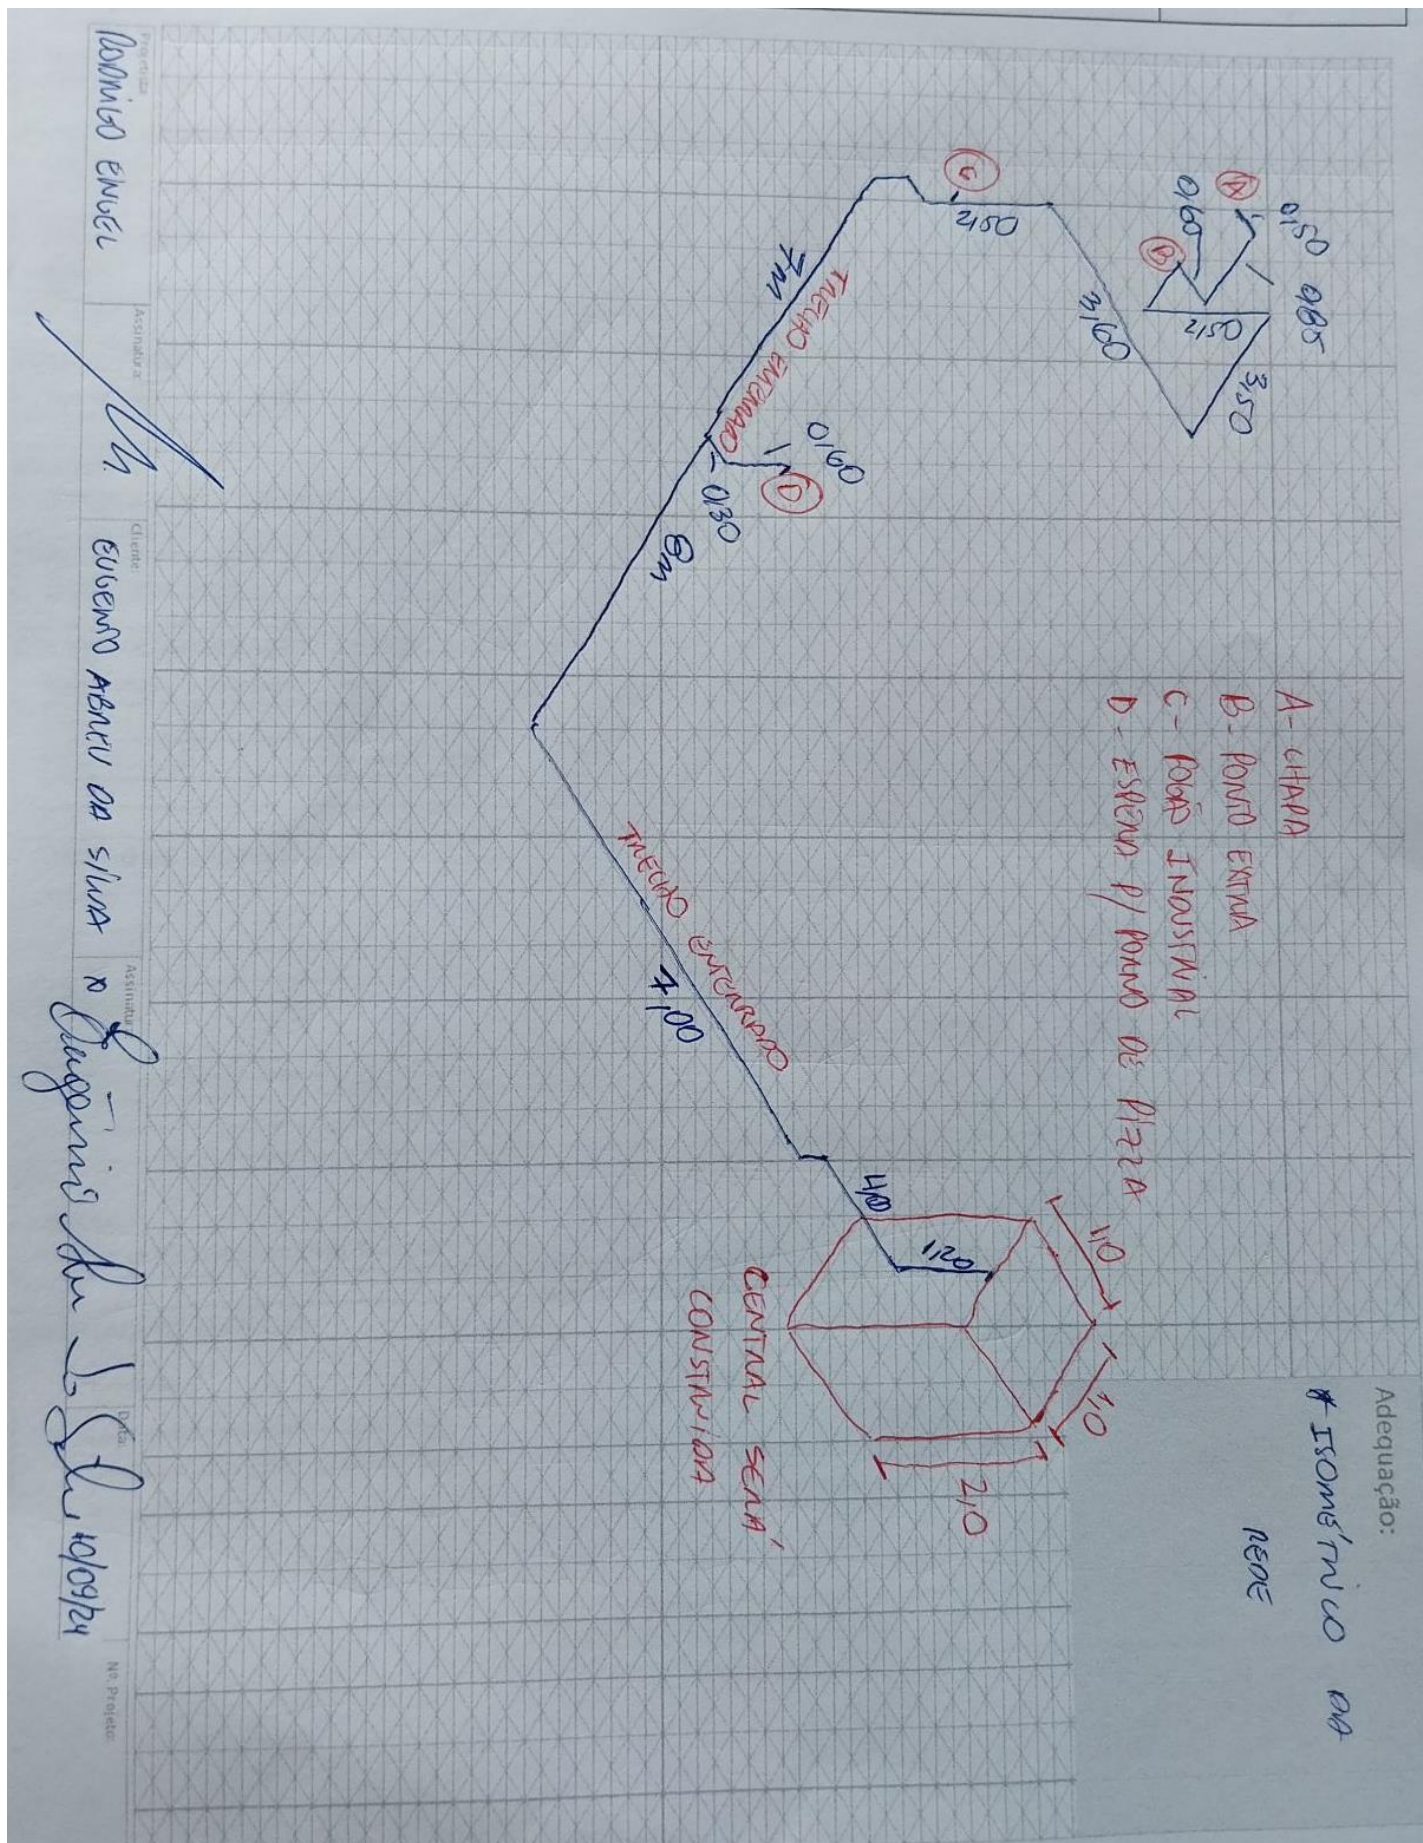 Adequação:
# ISOMÉTRICO DA
REDE
A - CHAPA
B - PONTO EXTRA
C - FOGÃO INDUSTRIAL
D - ESPERA P/ FORNO DE PIZZA
A
0,50
0,85
0,60
B
2,50
3,50
3,60
C
2,50
7m
TRECHO ENTERRADO
0,60
D
0,30
8m
TRECHO ENTERRADO
7,00
1,20
1,0
1,0
2,0
CENTRAL SERÁ
CONSTRUIDA
Projetista
RODRIGO ENGEL
Assinatura:
Cliente:
EUGENIO ABREU DA SILVA
Assinatura
Data:
10/09/24
Nº Projeto: